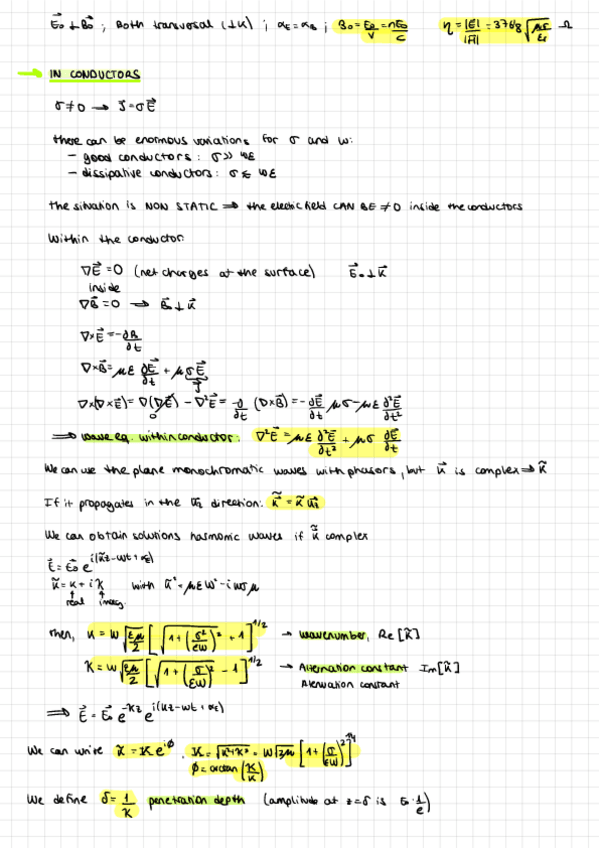 E⃗₀ ⊥ B⃗₀ ; Both transversal (⊥ k) ; α_E = α_B ; B₀ = E₀/v = nE₀/c    η = |E⃗|/|H⃗| = 376,8 √(μr/εr) Ω
→ IN CONDUCTORS
σ ≠ 0 → J = σE⃗
there can be enormous variations for σ and ω:
- good conductors: σ >> ωε
- dissipative conductors: σ ≤ ωε
the situation is NON STATIC ⇒ the electric field CAN BE ≠ 0 inside the conductors
Within the conductor:
∇E⃗ = 0 (net charges at the surface)    E⃗₀ ⊥ k⃗
inside
∇B⃗ = 0 → B⃗₀ ⊥ k⃗
∇×E⃗ = -∂B/∂t
∇×B⃗ = με ∂E⃗/∂t + μσE⃗
J
∇×(∇×E⃗) = ∇(∇E⃗) - ∇²E⃗ = -∂/∂t (∇×B⃗) = -∂E⃗/∂t μσ - με ∂²E⃗/∂t²
0
⇒ wave eq. within conductor: ∇²E⃗ = με ∂²E⃗/∂t² + μσ ∂E⃗/∂t
We can use the plane monochromatic waves with phasors, but k⃗ is complex ⇒ k̃
If it propagates in the u⃗z direction: k̃⃗ = k̃ u⃗z
We can obtain solutions harmonic waves if k̃ complex
E⃗ = E⃗₀ e^i(k̃z-ωt+α_E)
k̃ = k + i K    with k̃² = μεω² - iωσμ
real imag.
then, k = ω √(εμ/2) [√(1+(σ/εω)²) + 1]^1/2 → wavenumber, Re[k̃]
K = ω √(εμ/2) [√(1+(σ/εω)²) - 1]^1/2 → Alternation constant Im[k̃]
Atenuation constant
⇒ E⃗ = E⃗₀ e^-Kz e^i(kz-ωt+α_E)
We can write k̃ = K e^iϕ, K = √(k²+K²) = ω√(εμ) [1+(σ/εω)²]^1/4
ϕ = arctan (K/k)
We define δ = 1/K penetration depth (amplitude at z=δ is E₀·1/e)